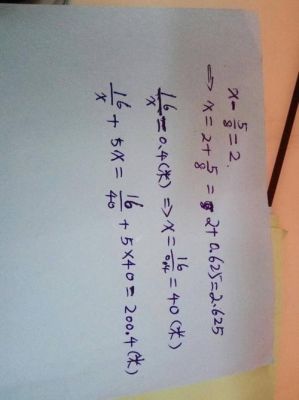 x - 5/8 = 2.
⇒ x = 2 + 5/8 = 2 + 0.625 = 2.625
16/x = 0.4 (米) ⇒ x = 16/0.4 = 40 (米)
16/x + 5x = 16/40 + 5×40 = 200.4 (米)